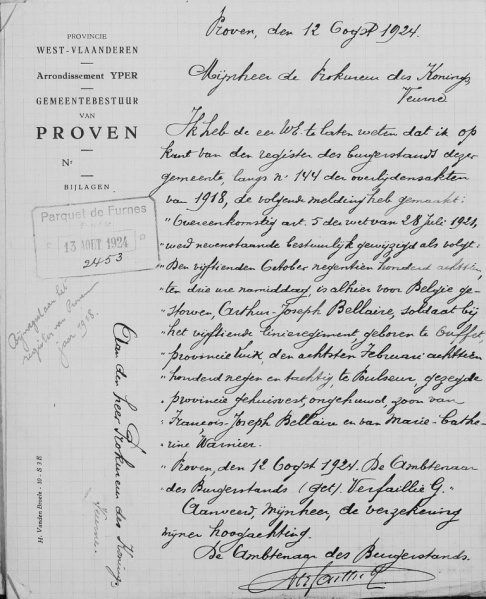 PROVINCIE
WEST-VLAANDEREN
Arrondissement YPER
GEMEENTEBESTUUR
VAN
PROVEN
Nr
BIJLAGEN
Parquet de Furnes
13 AOUT 1924
2453
register van Proven
jaar 1918.
Aan den heer Prokureur des Konings
Veurne.
H. Vanden Broele - 10 - S 3 E
Proven, den 12 Oogst 1924.
Mijnheer de Prokureur des Konings,
Veurne
Ik heb de eer UE. te laten weten dat ik op
kant van den register des burgerstands dezer
gemeente, langs nr 144 der overlijdensakten
van 1918, de volgende melding heb gemaakt:
"Overeenkomstig art. 5 der wet van 28 Juli 1921,
" werd nevenstaande bestuurlijk gewijzigd als volgt:
" Den vijftienden October negentien honderd achttien,
" ten drie ure namiddag, is alhier voor Belgie ge-
" storven, Arthur-Joseph Bellaire, soldaat bij
" het vijftiende linieregiment, geboren te Ouffet,
" provincie Luik, den achtsten Februari achttien
" honderd negen en tachtig, te Poulseur, gezegde
" provincie gehuisvest, ongehuwd, zoon van
" François-Joseph Bellaire en van Marie-Cathe-
" rine Warnier.
" Proven, den 12 Oogst 1924. De Ambtenaar
" des Burgerstands (get) Verfaillie G."
Aanveerd, mijnheer, de verzekering
mijner hoogachting.
De Ambtenaar des Burgerstands.